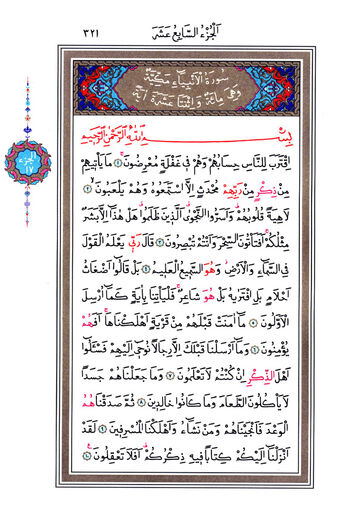 اَلْجُزْءُ السَّابِعُ عَشَرَ
٣٢١
سُورَةُ الْاَنْبِيَاءِ مَكِّيَّةٌ
وَهِىَ مِائَةٌ وَاثْنَتَا عَشْرَةَ اٰيَةً
الجزء
١٧
بِسْمِ اللّٰهِ الرَّحْمٰنِ الرَّحِيمِ
اِقْتَرَبَ لِلنَّاسِ حِسَابُهُمْ وَهُمْ فِى غَفْلَةٍ مُعْرِضُونَ ١ مَا يَاْتِيهِمْ
مِنْ ذِكْرٍ مِنْ رَبِّهِمْ مُحْدَثٍ اِلَّا اسْتَمَعُوهُ وَهُمْ يَلْعَبُونَ ٢
لَاهِيَةً قُلُوبُهُمْ وَاَسَرُّوا النَّجْوَى الَّذِينَ ظَلَمُوا هَلْ هٰذَا اِلَّا بَشَرٌ
مِثْلُكُمْ اَفَتَاْتُونَ السِّحْرَ وَاَنْتُمْ تُبْصِرُونَ ٣ قَالَ رَبِّى يَعْلَمُ الْقَوْلَ
فِى السَّمَاءِ وَالْاَرْضِ وَهُوَ السَّمِيعُ الْعَلِيمُ ٤ بَلْ قَالُوا اَضْغَاثُ
اَحْلَامٍ بَلِ افْتَرٰيهُ بَلْ هُوَ شَاعِرٌ فَلْيَاْتِنَا بِاٰيَةٍ كَمَا اُرْسِلَ
الْاَوَّلُونَ ٥ مَا اٰمَنَتْ قَبْلَهُمْ مِنْ قَرْيَةٍ اَهْلَكْنَاهَا اَفَهُمْ
يُؤْمِنُونَ ٦ وَمَا اَرْسَلْنَا قَبْلَكَ اِلَّا رِجَالًا نُوحِى اِلَيْهِمْ فَسْئَلُوا
اَهْلَ الذِّكْرِ اِنْ كُنْتُمْ لَا تَعْلَمُونَ ٧ وَمَا جَعَلْنَاهُمْ جَسَدًا
لَا يَاْكُلُونَ الطَّعَامَ وَمَا كَانُوا خَالِدِينَ ٨ ثُمَّ صَدَقْنَاهُمُ
الْوَعْدَ فَاَنْجَيْنَاهُمْ وَمَنْ نَشَاءُ وَاَهْلَكْنَا الْمُسْرِفِينَ ٩ لَقَدْ
اَنْزَلْنَا اِلَيْكُمْ كِتَابًا فِيهِ ذِكْرُكُمْ اَفَلَا تَعْقِلُونَ ١٠